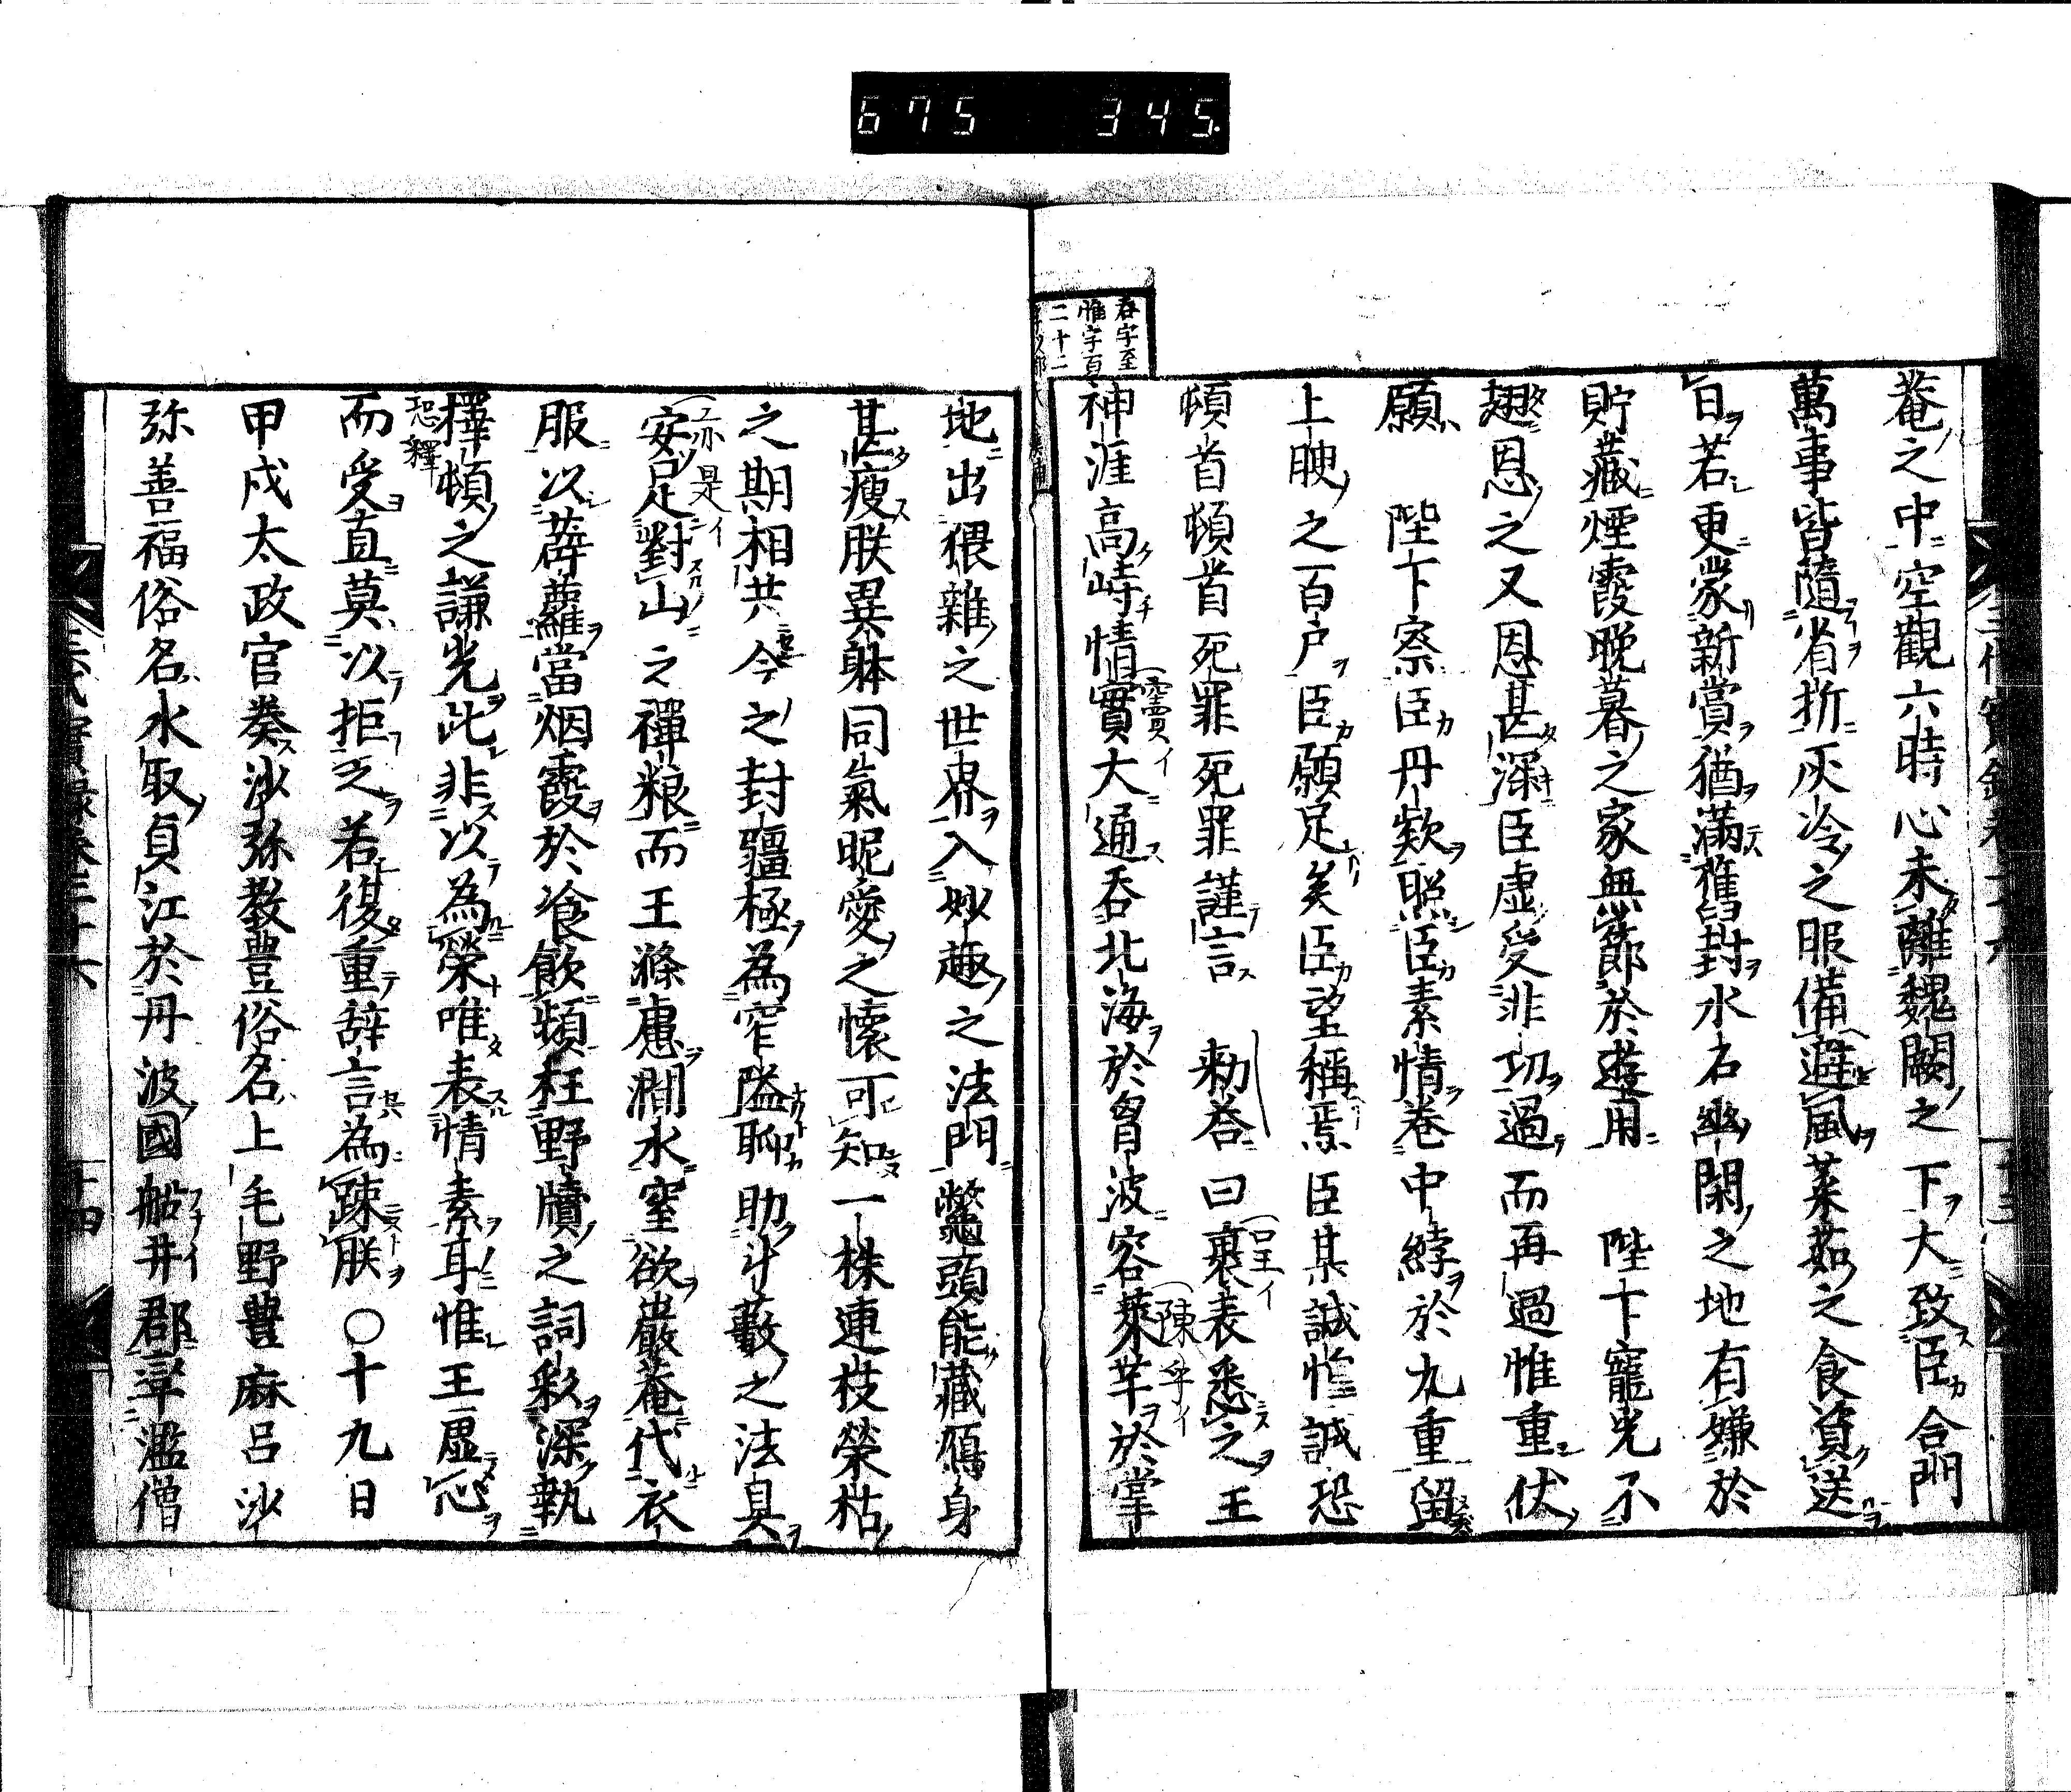 675 345.
菴之中空觀六時心未離魏闕之下大致臣合門
萬事皆隨省折灰冷之服備避風菜茹之食資送
日若更蒙新賞猶滿舊封水石幽閑之地有嫌於
貯藏煙霞晚暮之家無節於遊用 陛下寵光不
趐恩之又恩甚深臣虚受非功過而再過惟重伏
願 陛下察臣丹欵照臣素情巻中綍於九重留
上腴之百戸臣願足矣臣望稱焉臣某誠惶誠恐
頓首頓首死罪死罪謹言 勅答曰裹表悉之王
神涯高峙情實大通呑北海於胷波容萊芥於掌
呑字至
惟字百
二十二
地出猥雜之世界入妙趣之法門鼈頭能藏鴈身
甚瘦朕異躰同氣昵愛之懷可知一株連枝榮枯
之期相共今之封疆極為窄隘聊助斗藪之法具
安足對山之禪粮而王滌慮澗水窒欲巖菴代衣
服以薜蘿當烟霞於飡飲頻枉野牘之詞秘深執
擇頓之謙光此非以為榮唯表情素耳惟王虚心
而受直莫以拒之若復重辞言為踈朕〇十九日
甲戌太政官奏沙弥教豊俗名上毛野豊麻呂沙
弥善福俗名水取貞江於丹波國船井郡寺濫僧